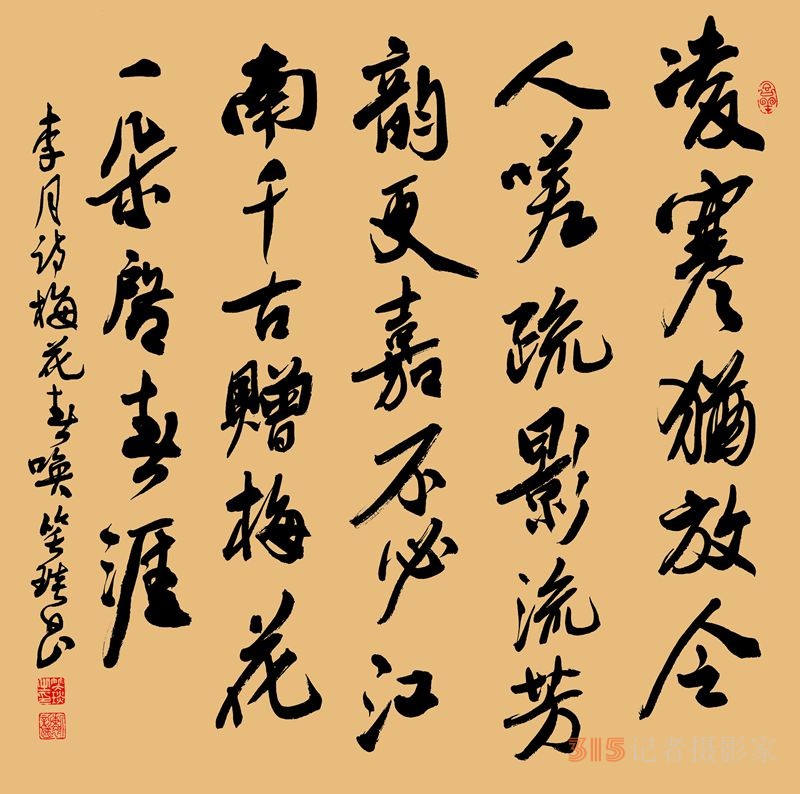 凌寒猶放令
人嗟疏影流芳
韵更嘉不必江
南千古赠梅花
一朵啓春涯
李月诗梅花春唤
315记者摄影家